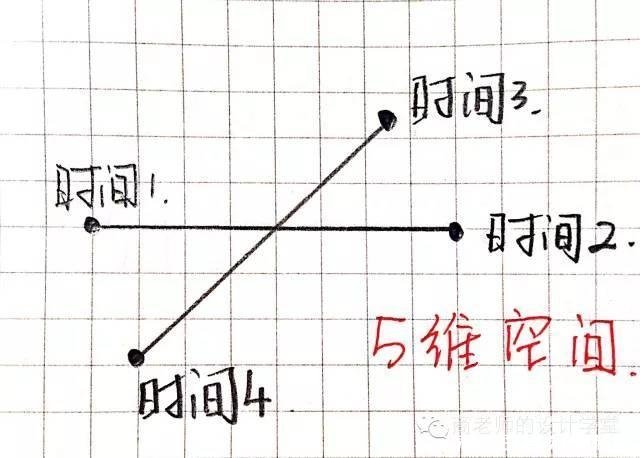 时间3.
时间1.
时间2.
5维空间.
时间4.
的设计学堂